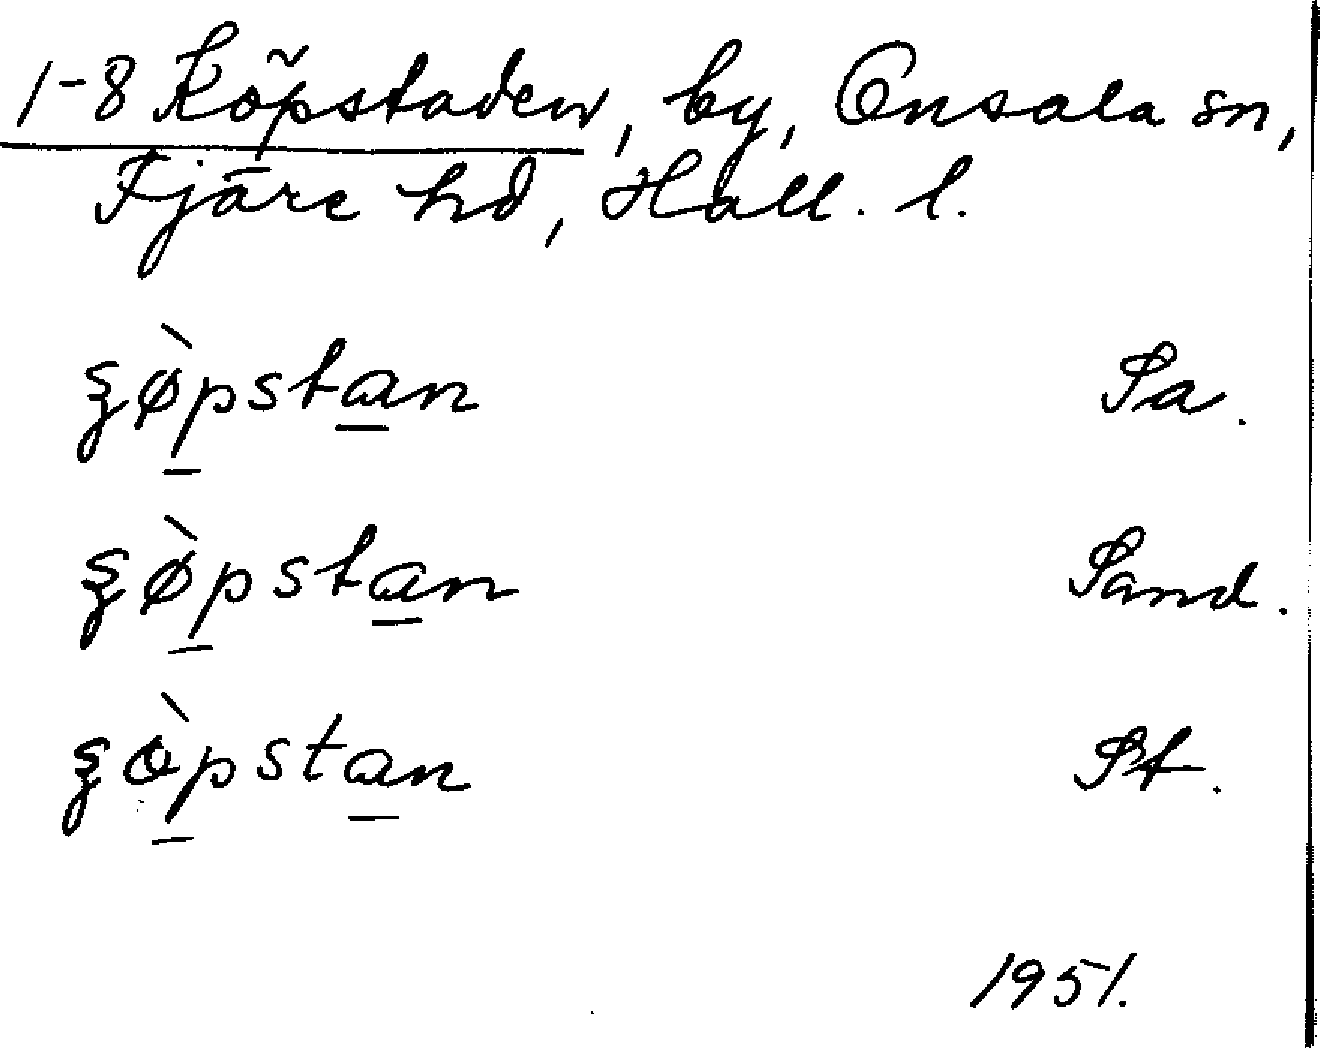 1-8 Köpstaden, by, Onsala sn,
Fjäre hd, Hall. l.
ʂø̀pstan Sa.
ʂø̀pstan Sand.
ʂòpstan St.
1951.